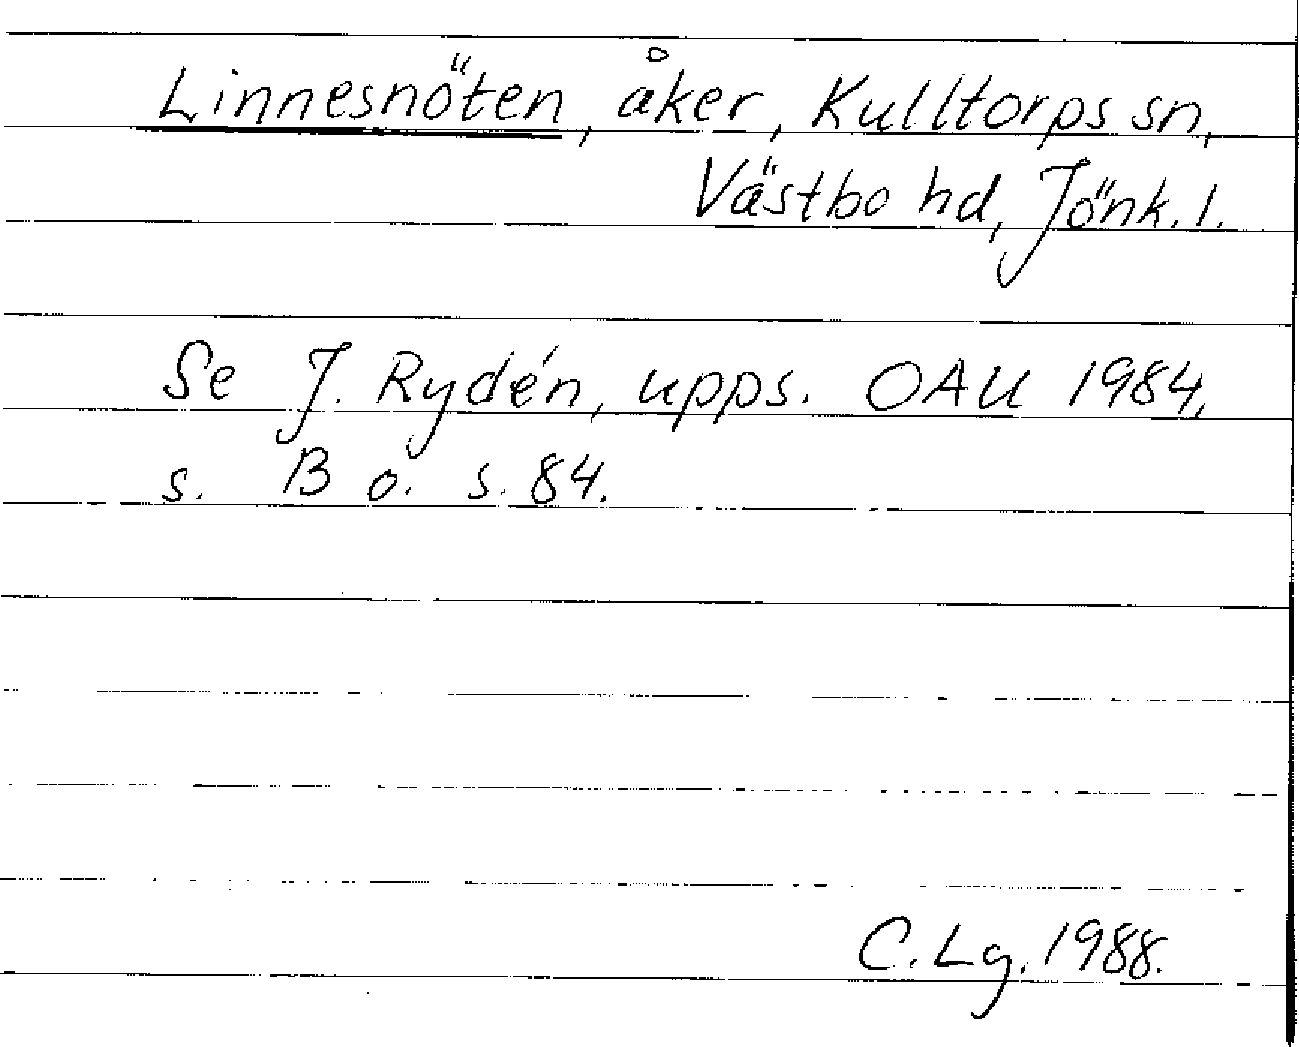 Linnesnöten, åker, Kulltorps sn,
Västbo hd, Jönk. l.
Se J. Rydén, upps. OAU 1984,
s. B o. s. 84.
C. Lg. 1988.